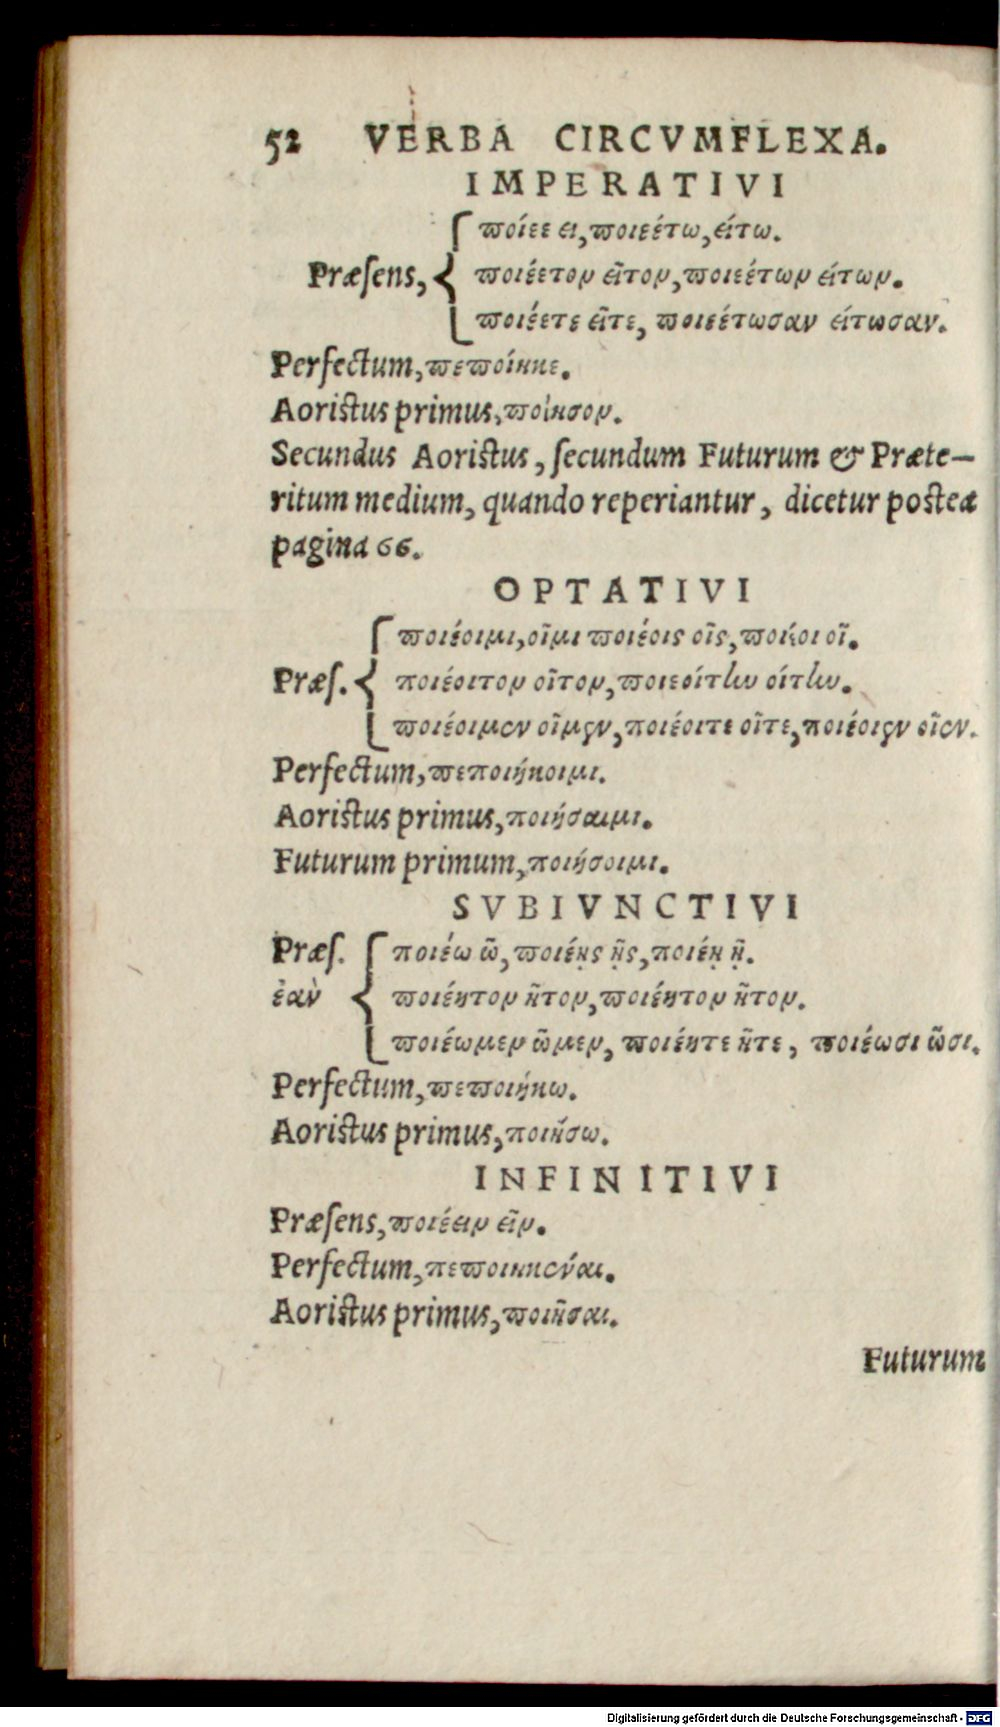 52 VERBA CIRCVMFLEXA.
IMPERATIVI
ποίεε ει, ποιεέτω, είτω.
Præſens, ποιέετον εῖτον, ποιεέτων είτων.
ποιέετε εῖτε, ποιεέτωσαν είτωσαν.
Perfectum, πεποίηκε.
Aoristus primus, ποίησον.
Secundus Aoristus, ſecundum Futurum & Præte-
ritum medium, quando reperiantur, dicetur posteà
pagina 66.
OPTATIVI
ποιέοιμι, οῖμι ποιέοις οῖς, ποιέοι οῖ.
Præſ. ποιέοιτον οῖτον, ποιεοίτην οίτην.
ποιέοιμεν οῖμεν, ποιέοιτε οῖτε, ποιέοιεν οῖεν.
Perfectum, πεποιήκοιμι.
Aoristus primus, ποιήσαιμι.
Futurum primum, ποιήσοιμι.
SVBIVNCTIVI
Præſ. ποιέω ῶ, ποιέῃς ῇς, ποιέῃ ῇ.
ἐὰν ποιέητον ῆτον, ποιέητον ῆτον.
ποιέωμεν ῶμεν, ποιέητε ῆτε, ποιέωσι ῶσι.
Perfectum, πεποιήκω.
Aoristus primus, ποιήσω.
INFINITIVI
Præſens, ποιέειν εῖν.
Perfectum, πεποιηκέναι.
Aoristus primus, ποιῆσαι.
Futurum
Digitalisierung gefördert durch die Deutsche Forschungsgemeinschaft - DFG